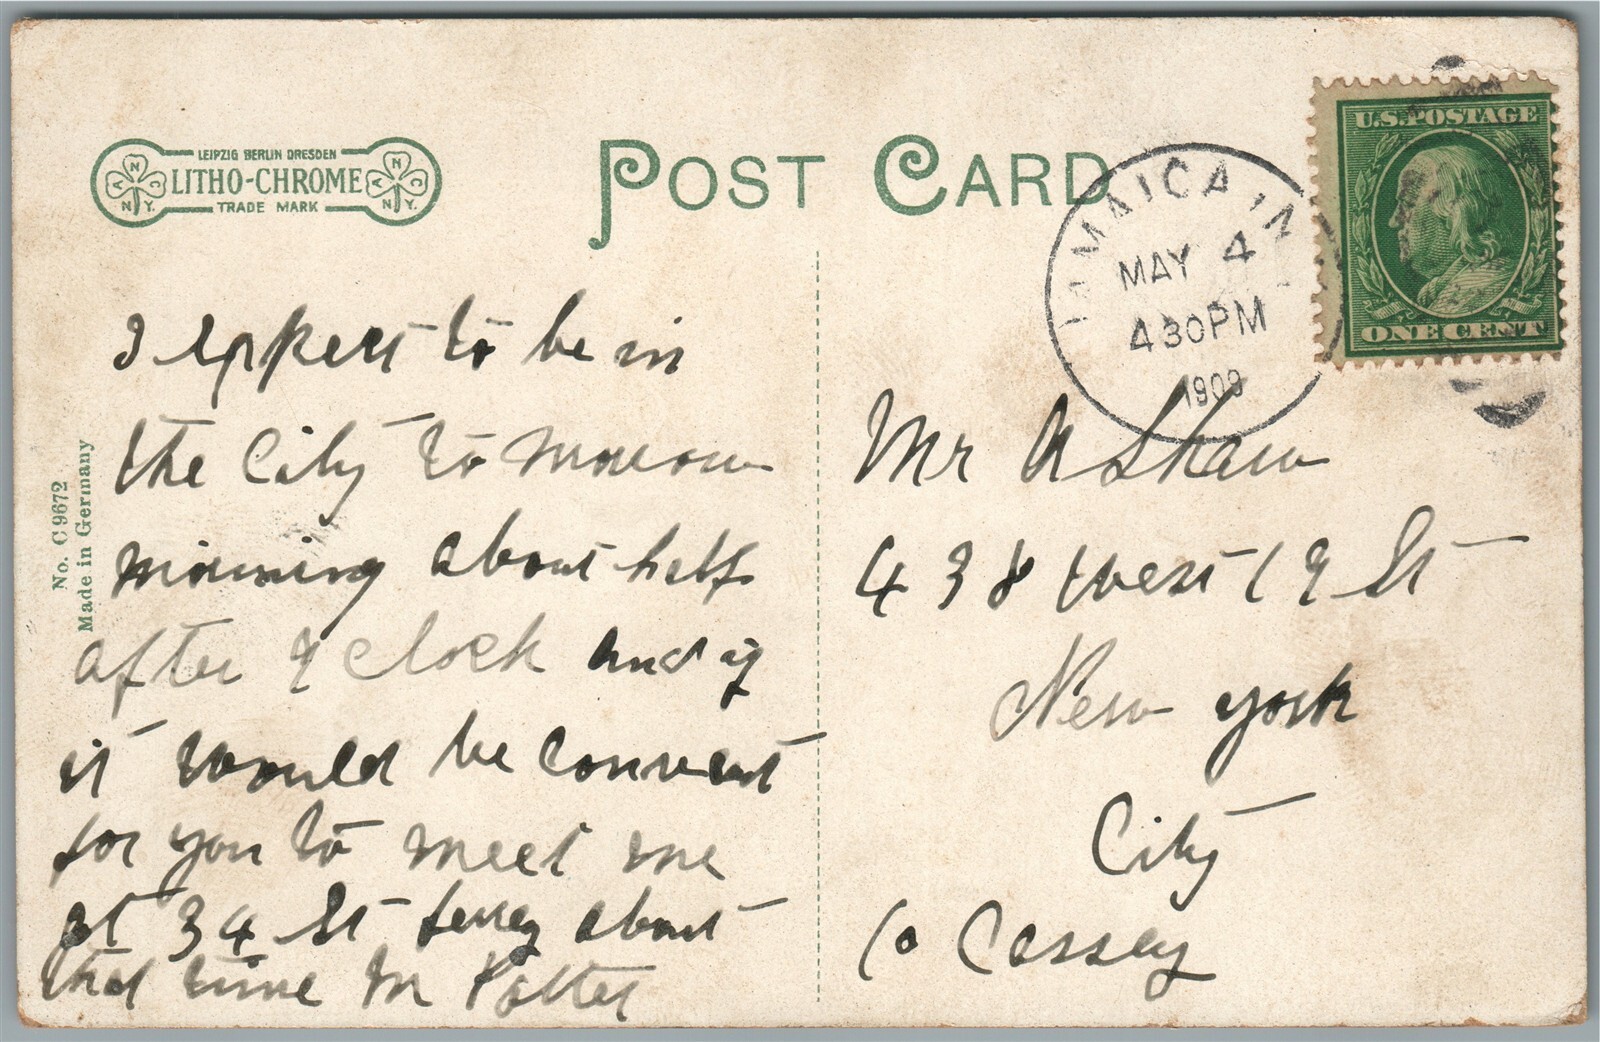 LEIPZIG BERLIN DRESDEN
LITHO-CHROME
TRADE MARK
A N C N.Y.
A N C N.Y.
POST CARD
JAMAICA, N
MAY 4
430PM
1909
U.S. POSTAGE
ONE CENT
No. C 9672
Made in Germany
I expect to be in
the City to morrow
morning about half
after 9 clock and if
it would be convent
for you to meet me
at 34 St ferrey about
that time M Potter
Mr A Shaw
438 West 19 St
New york
City
Co Cassey